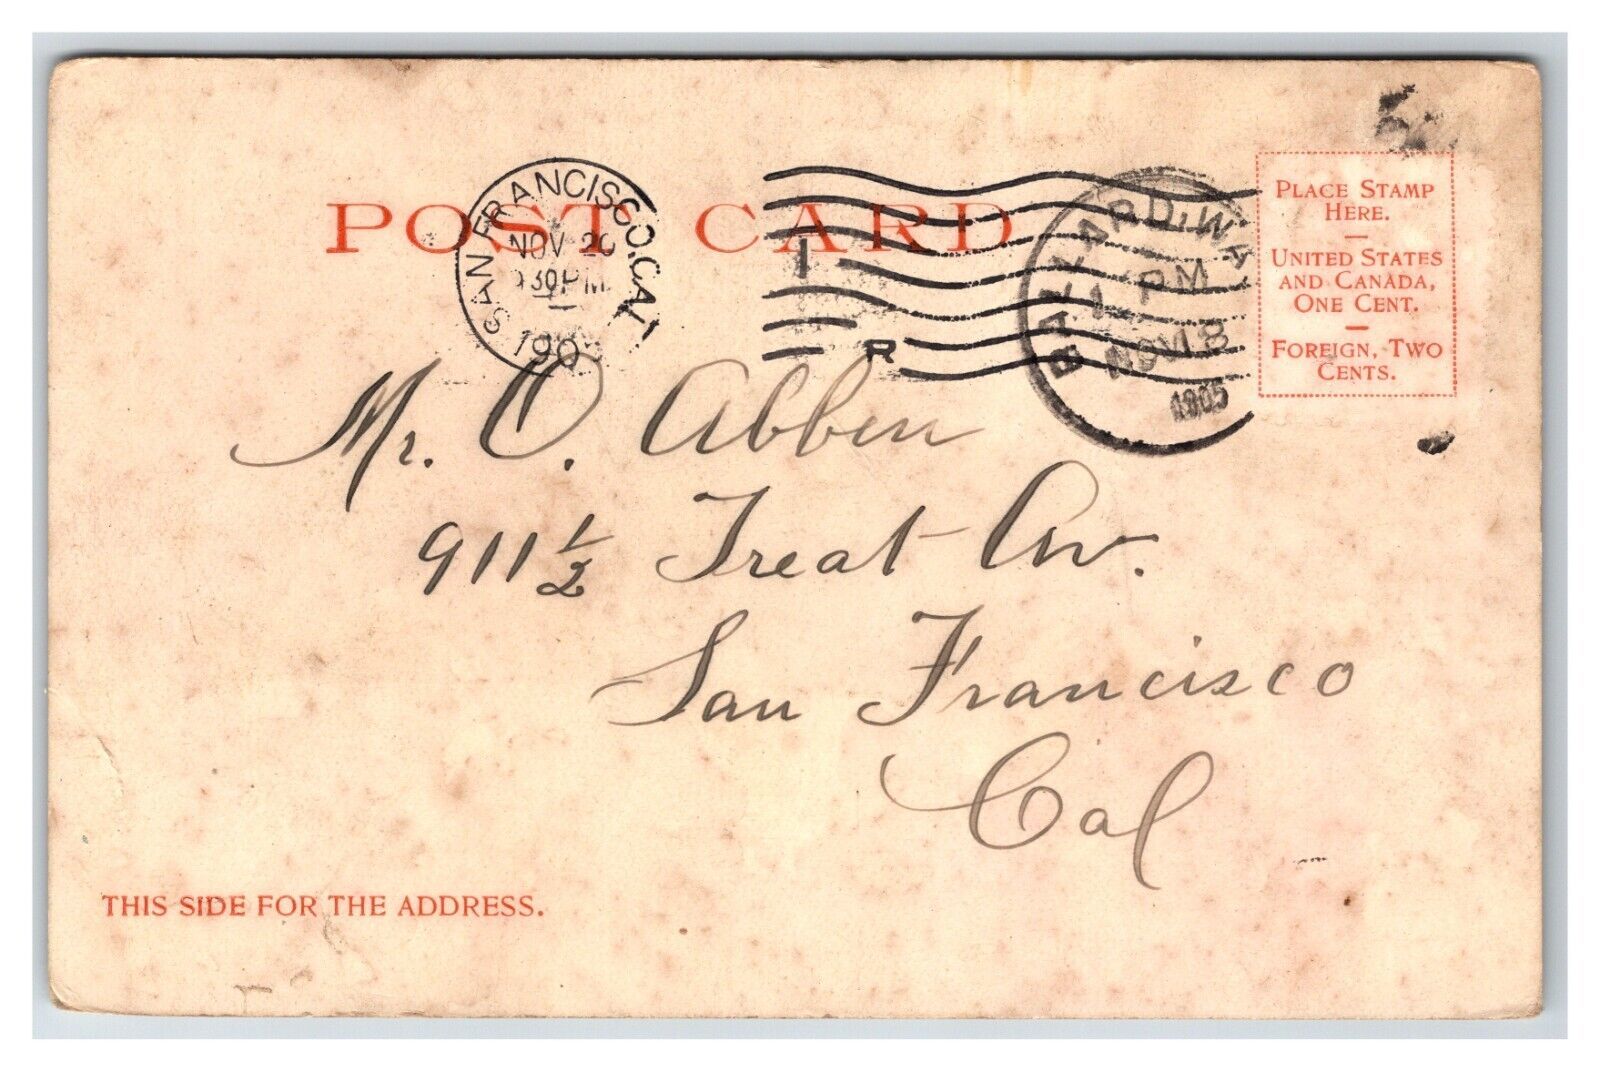 POST CARD
SAN FRANCISCO, CAL
NOV 20
30 PM
190
R
BALLARD, WA
1 PM
NOV 18
1905
PLACE STAMP
HERE.
—
UNITED STATES
AND CANADA,
ONE CENT.
—
FOREIGN, TWO
CENTS.
Mr. O. Abben
911½ Treat Av.
San Francisco
Cal
THIS SIDE FOR THE ADDRESS.